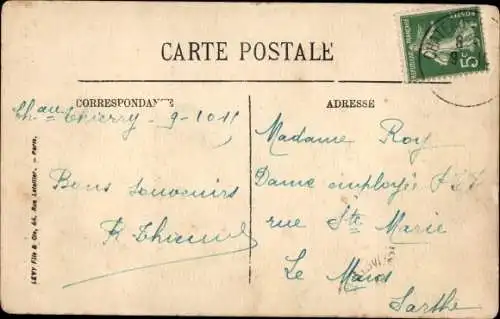 CARTE POSTALE
CORRESPONDANCE
ADRESSE
RÉPUBLIQUE FRANÇAISE
POSTES
5c
Chau Thierry 9-10 11
Bons souvenirs
Madame Roy
Dame employée
rue Ste Marie
Le Mans
Sarthe
LÉVY Fils & Cie, 44, Rue Letellier. — Paris.